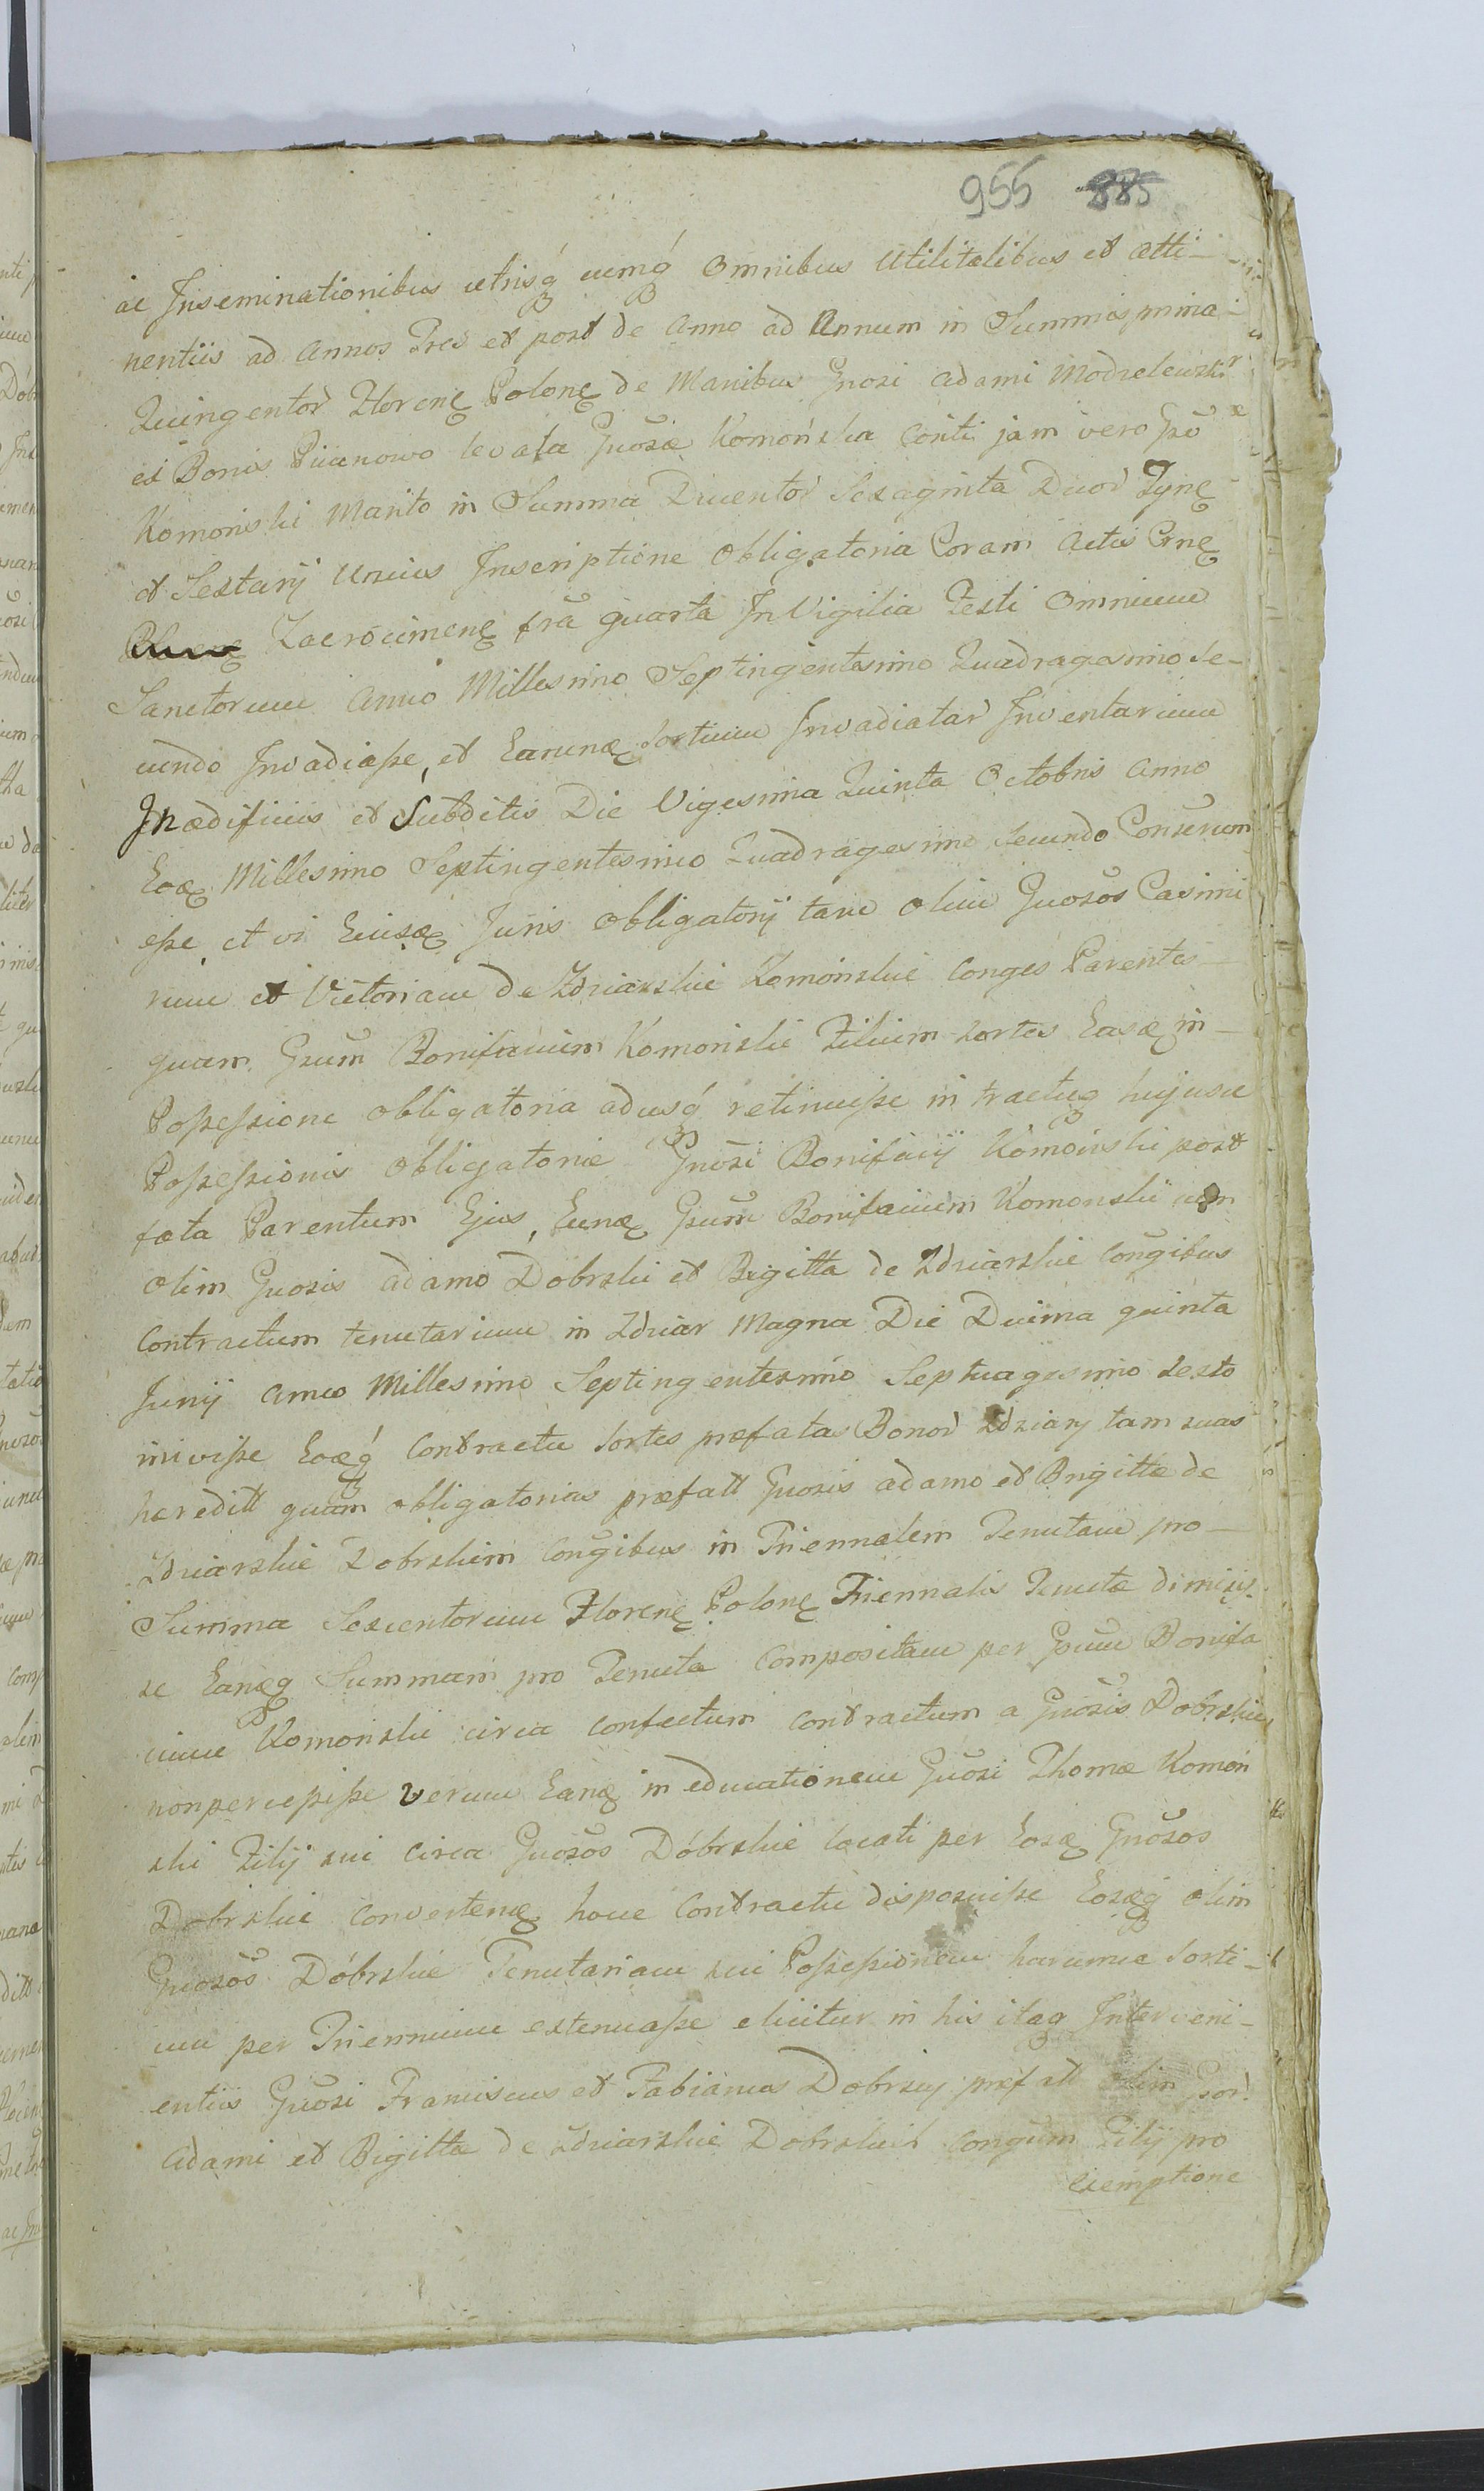 955 885
ac Inseminationibus utrisq́ cumq́ Omnibus Utilitatibus et atti-
nentiis ad Annos Tres et post de Anno ad Annum in Summis prima
Quingentor̀ Florenę Polonę de Manibus Gnosi Adami Modzelewski
ex Bonis Piianowo levata Gnosæ Komońska Conti jam vero Gso
Komoński Marito in Summa Ducentor̀ Sexaginta Duor̀ Tynę
et Sextarij Unius Inscriptione Obligatoria Coram Actis Crnę
Zacrocimenę fra quarta In Vigilia Festi Omnium
Sanctorum Anno Millesimo Septingentesimo Quadragesimo Se-
cundo Invadiasse, et Earumę Sortium Invadiatar̀ Inventarium
In ædificiis et Subditis Die Vigesima Quinta Octobris Anno
Eoæ Millesimo Septingentesimo Quadragesimo Secundo Conscriptum
esse, et vi Ejusæ Juris Obligatorij tam olim Gnosos Casimi
rum et Victoriam de Zdziarskie Komońskie Conges Parentes
quam Gsum Bonifacium Komoński Filium sortes Easæ in-
Possessione obligatoria adusq́ retinuisse in tractuq hujusce
Possessionis Obligatoriæ Gnosi Bonifacij Komoński post
fata Parentum Ejus, Eunæ Gsum Bonifacium Komoński cum
olim Gnosis Adamo Dobrski et Brigitta de Zdziarskie Congibus
Contractum tenutarium in Zdziar Magna Die Decima quinta
Junij Anno Millesimo Septingentesimo Septuagesimo Sexto
inivisse Eoæq́ Contractu Sortes præfatas Bonor̀ Zdziary tam suas
hæreditt quam obligatorias præfatt Gnosis Adamo et Brigittæ de
Zdziarskie Dobrskim Congibus in Triennalem Tenutam pro-
Summa Sexcentorum Florenę Polonę Triennalis Tenutæ dimisis-
se Eanæq Summam pro Tenuta Compositam per Gsum Bonifa
cium Komoński circa Confectum Contractum a Gnosis Dobrskim
non percepisse verum Eanæ in educationem Gnosi Thomæ Komoń
ski Filij sui circa Gnosos Dóbrskie locati per Eosæ Gnosos
Dobrskie Convertenę hocce Contractu disposuisse Eosæq́ olim
Gnosos Dóbrskie Tenutariam sui Possessionem harumce Sorti-
um per Triennium extenuasse elicitur in his itaq Interveni-
entiis Gnosi Franciscus et Fabianus Dobrscy præfatt olim Gsor̀
Adami et Brigittæ de Zdziarskie Dobrskich Congum Filij pro
Exemptione